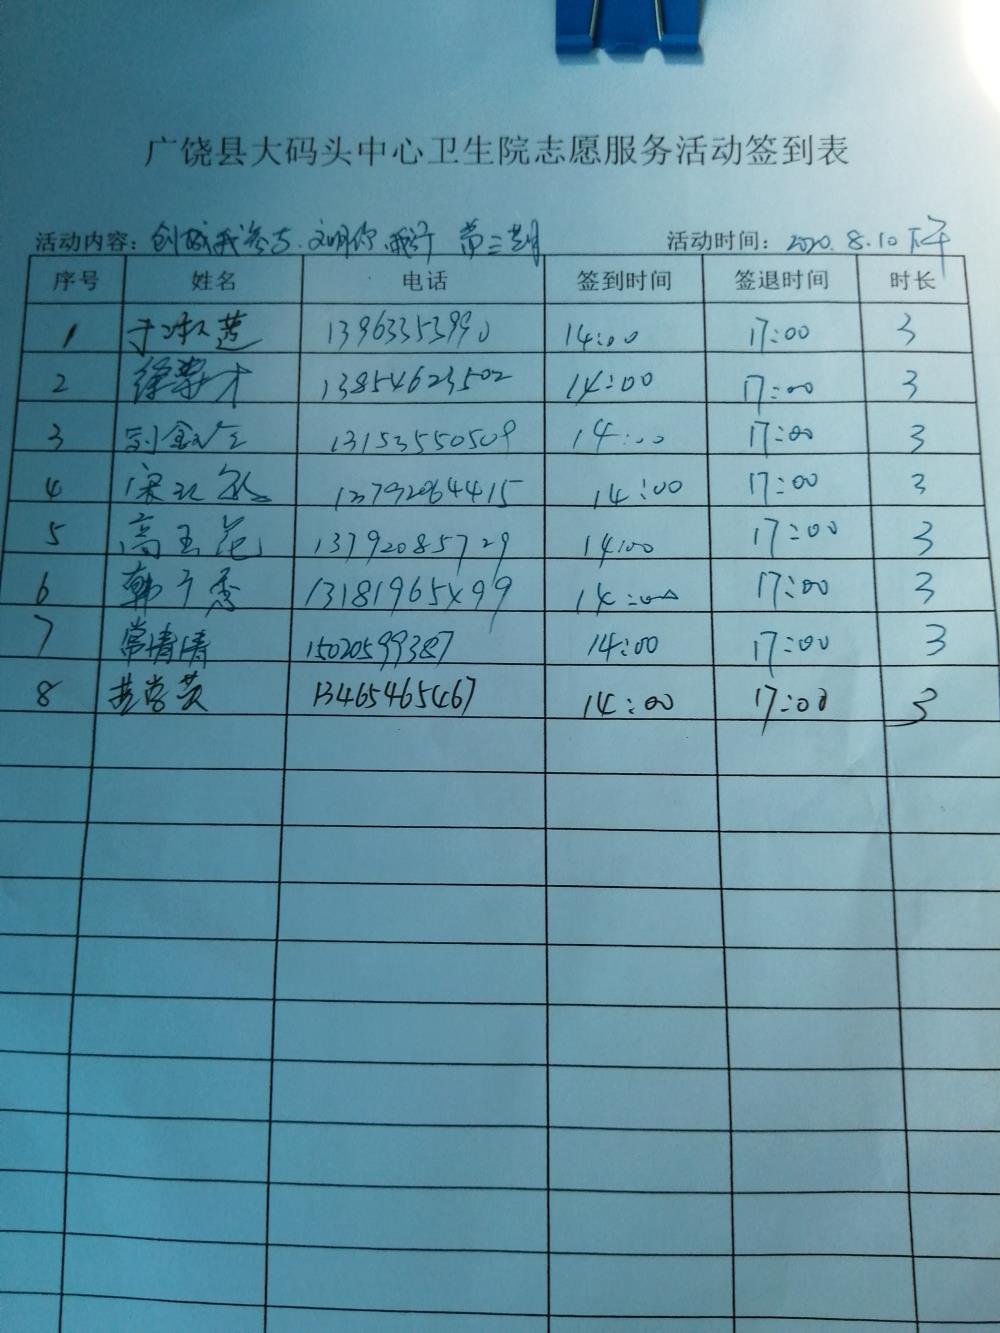 广饶县大码头中心卫生院志愿服务活动签到表
活动内容：创城我参与.文明你我行 第三期 活动时间：2020.8.10下午
序号 姓名 电话 签到时间 签退时间 时长
1 13963353990 14:00 17:00 3
2 徐荣才 13854623502 14:00 17:00 3
3 13153550509 14:00 17:00 3
4 13792064415 14:00 17:00 3
5 高玉花 13792085729 14:00 17:00 3
6 韩子秀 14:00 17:00 3
7 常清清 15020599387 14:00 17:00 3
8 13465465467 14:00 17:00 3